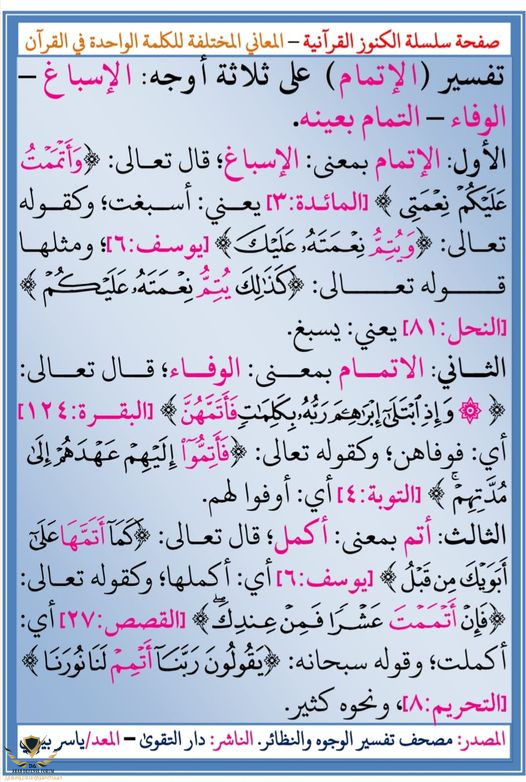 صفحة سلسلة الكنوز القرآنية – المعاني المختلفة للكلمة الواحدة في القرآن
تفسير (الإتمام) على ثلاثة أوجه: الإسباغ –
الوفاء – التمام بعينه.
الأول: الإتمام بمعنى: الإسباغ؛ قال تعالى: ﴿وَأَتۡمَمۡتُ
عَلَيۡكُمۡ نِعۡمَتِي﴾ [المائدة:٣] يعني: أسبغت؛ وكقوله
تعالى: ﴿وَيُتِمُّ نِعۡمَتَهُۥ عَلَيۡكَ﴾ [يوسف:٦]؛ ومثلها
قوله تعالى: ﴿كَذَٰلِكَ يُتِمُّ نِعۡمَتَهُۥ عَلَيۡكُمۡ﴾
[النحل:٨١] يعني: يسبغ.
الثاني: الاتمام بمعنى: الوفاء؛ قال تعالى:
﴿۞ وَإِذِ ٱبۡتَلَىٰٓ إِبۡرَٰهِـۧمَ رَبُّهُۥ بِكَلِمَٰتٖ فَأَتَمَّهُنَّ﴾ [البقرة:١٢٤]
أي: فوفاهن؛ وكقوله تعالى: ﴿فَأَتِمُّوٓاْ إِلَيۡهِمۡ عَهۡدَهُمۡ إِلَىٰ
مُدَّتِهِمۡۚ﴾ [التوبة:٤] أي: أوفوا لهم.
الثالث: أتم بمعنى: أكمل؛ قال تعالى: ﴿كَمَآ أَتَمَّهَا عَلَىٰٓ
أَبَوَيۡكَ مِن قَبۡلُ﴾ [يوسف:٦] أي: أكملها؛ وكقوله تعالى:
﴿فَإِنۡ أَتۡمَمۡتَ عَشۡرٗا فَمِنۡ عِندِكَۖ﴾ [القصص:٢٧] أي:
أكملت؛ وقوله سبحانه: ﴿يَقُولُونَ رَبَّنَآ أَتۡمِمۡ لَنَا نُورَنَا﴾
[التحريم:٨]، ونحوه كثير.
المصدر: مصحف تفسير الوجوه والنظائر. الناشر: دار التقوى – المعد/ياسر